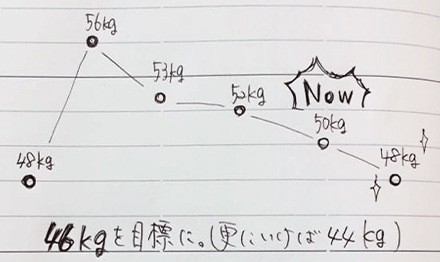 56kg
53kg
52kg
Now
50kg
48kg
48kg
46kgを目標に。(更にいけば44kg)